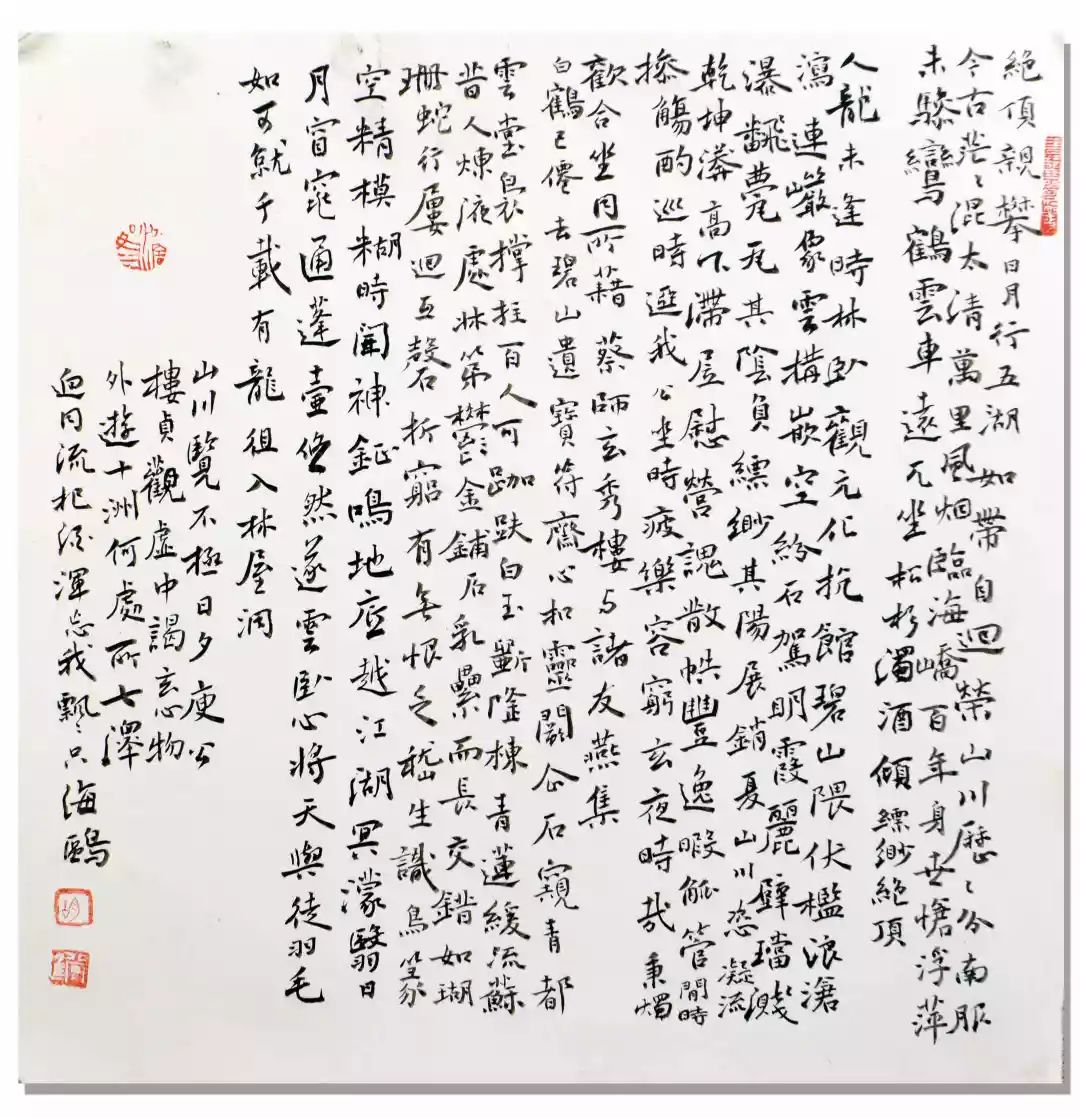 絕頂親攀日月行五湖如帶自迴縈山川歷〻分南服
今古茫〻混太清萬里風烟臨海嶠百年身世愴浮萍
未驂鸞鶴雲車遠兀坐松杉濁酒傾縹緲絕頂
人龍未逢時林臥觀元化抗館碧山隈伏檻浪滄
瀉連巖像雲構嵌空紛石駕明霞麗壁璫濺
瀑飜甍瓦其陰負縹緲其陽展銷夏山川态凝流
乾坤漭高下滯居慰營魂散帙豐逸暇觚管閒時
摻觴酌巡時逛我公坐時疲樂容窮玄夜時哉秉燭
歡合坐同所藉蔡師玄秀樓与諸友燕集
白鶴已僊去碧山遺寶符齋心扣靈闕企石窺青都
雲堂裊撐拄百人可跏趺白玉斷隆棟青蓮緩流蘇
昔人煉液處牀笫鬱金鋪石乳纍而長交錯如瑚
珊蛇行屢迴互磬折窮有無恨乏嵇生識鳥篆
空精模糊時聞神鉦鳴地底越江湖冥濛翳日
月窅窕通蓬壺倏然遂雲臥心將天與徒羽毛
如可就千載有龍徂入林屋洞
山川覽不極日夕庾公
樓貞觀虛中謁玄心物
外遊十洲何處所七澤
迥同流把酒渾忘我飄〻只海鷗